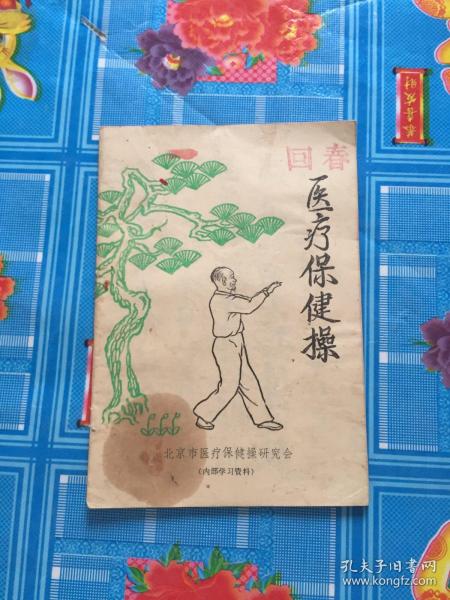 回春
医疗保健操
北京市医疗保健操研究会
(内部学习资料)
恭喜发财
孔夫子旧书网
www.kongfz.com